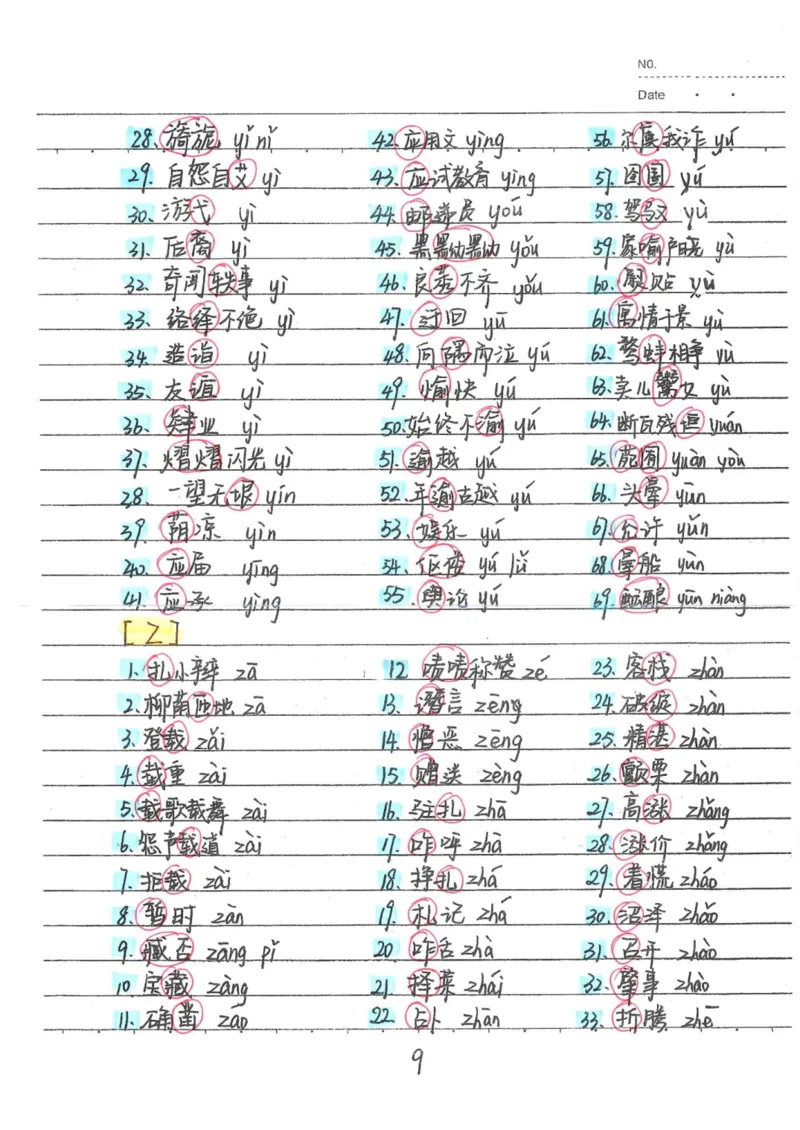 NO.
Date
28、旖旎 yǐ nǐ
29. 自怨自艾 yì
30、游弋 yì
31、后裔 yì
32、奇闻轶事 yì
33、络绎不绝 yì
34、造诣 yì
35、友谊 yì
36、肄业 yì
37、熠熠闪光 yì
38、一望无垠 yín
39、荫凉 yìn
40、应届 yīng
41、应承 yìng
42、应用文 yìng
43、应试教育 yìng
44、邮递员 yóu
45、黑黝黝 yǒu
46、良莠不齐 yǒu
47、迂回 yū
48、向隅而泣 yú
49、愉快 yú
50、始终不渝 yú
51、逾越 yú
52、年逾古稀 yú
53、娱乐 yú
54、伛偻 yǔ lǚ
55、舆论 yú
56、尔虞我诈 yú
57、囹圄 yǔ
58、驾驭 yù
59、家喻户晓 yù
60、熨贴 yù
61、寓情于景 yù
62、鹬蚌相争 yù
63、卖儿鬻女 yù
64、断瓦残垣 yuán
65、苑囿 yuàn yòu
66、头晕 yūn
67、允许 yǔn
68、晕船 yùn
69、酝酿 yùn niàng
[Z]
1、扎小辫 zā
2、柳荫匝地 zā
3、登载 zǎi
4、载重 zài
5、载歌载舞 zài
6、怨声载道 zài
7、拒载 zài
8、暂时 zàn
9、臧否 zāng pǐ
10、宝藏 zàng
11、确凿 záo
12 啧啧称赞 zé
13、谮言 zèng
14、憎恶 zēng
15、赠送 zèng
16、驻扎 zhā
17、咋呼 zhā
18、挣扎 zhá
19、札记 zhá
20 咋舌 zhà
21、择菜 zhái
22、占卜 zhān
23、客栈 zhàn
24、破绽 zhàn
25、精湛 zhàn
26、颤栗 zhàn
27、高涨 zhǎng
28、涨价 zhǎng
29、着慌 zháo
30、沼泽 zhǎo
31、召开 zhào
32、肇事 zhào
33、折腾 zhē
9